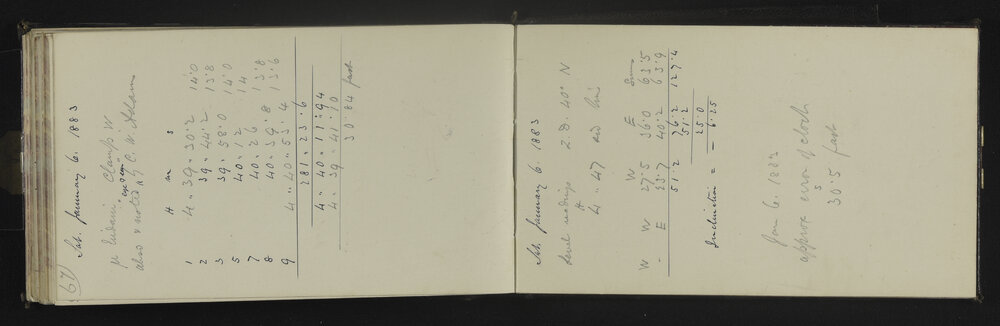 67
Sat. January 6. 1883
μ Eridani Clamp W
eye & ear
also & noted by C. W. Adams
H m s
1 4 " 39 " 30.2 14.0
2 39 " 44.2 13.8
3 39 " 58.0 14.0
5 40 " 12 14
7 40 " 26 13.8
8 40 " 39.8 13.6
9 4 " 40 " 53.4
281 " 23.6
4 " 40 " 11.94
4 " 39 " 41.10
30.84 fast
Sat. January 6. 1883
Level readings 2.D. 40° N
H
4 " 47
W E Sums
W W 27.5 36.0 63.5
- E 23.7 40.2 63.9
51.2 76.2 127.4
51.2
25.0
Inclination = - 6.25
Jan 6. 1883
approx error of clock
s
30.5 fast